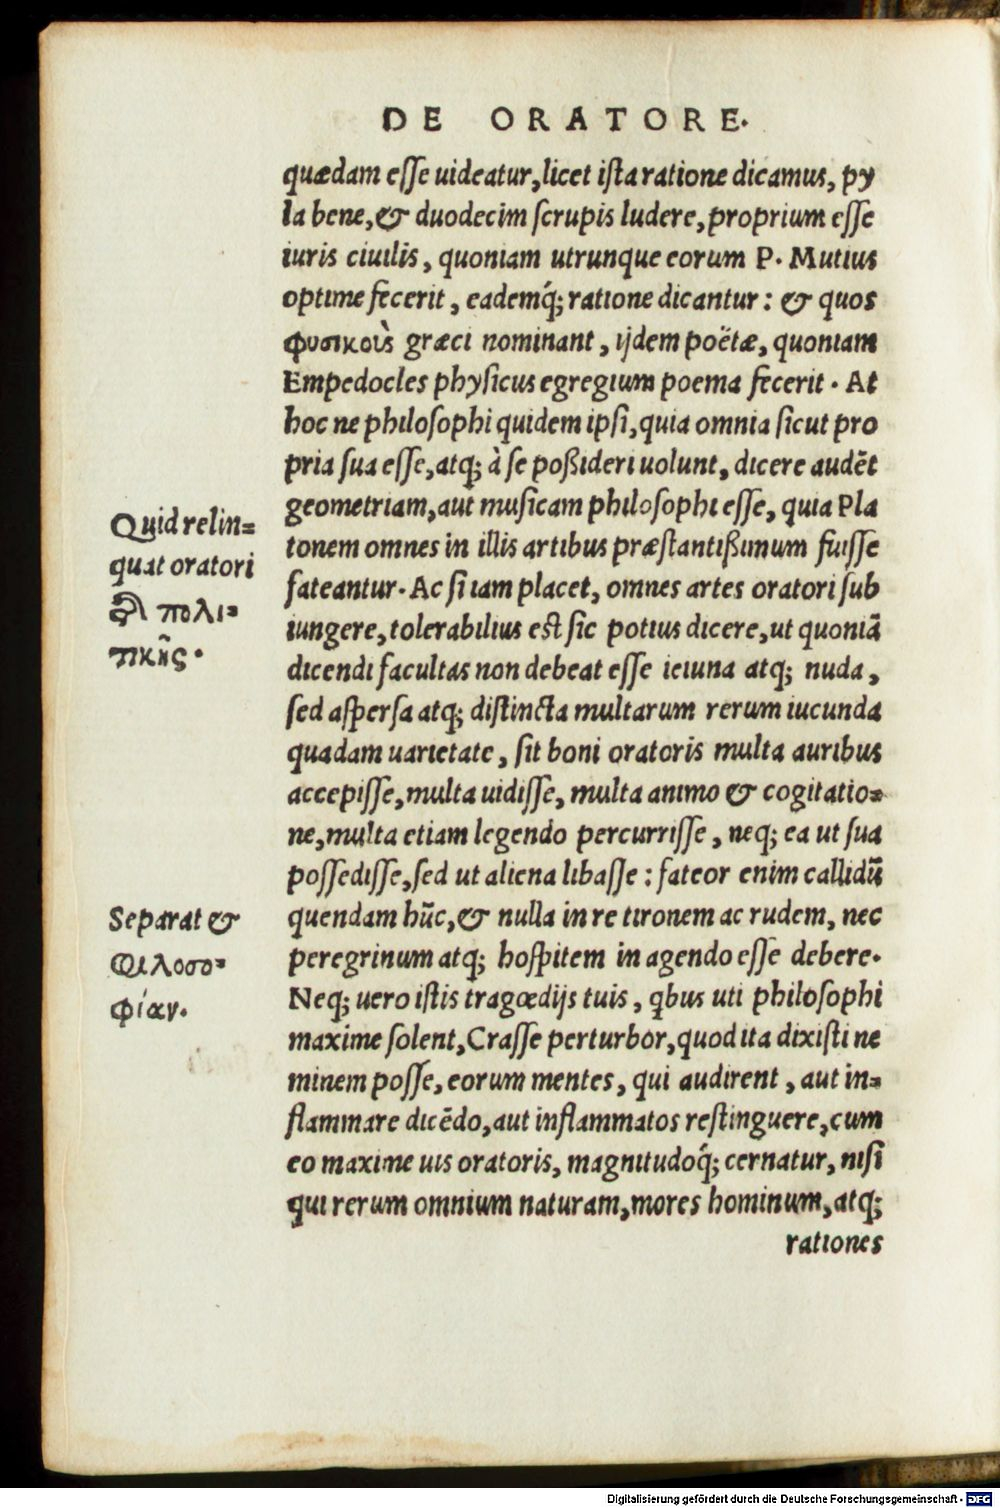 DE ORATORE.
quædam esse uideatur, licet ista ratione dicamus, py
la bene, & duodecim scrupis ludere, proprium esse
iuris ciuilis, quoniam utrunque eorum P. Mutius
optime fecerit, eademq́; ratione dicantur: & quos
φυσικοὺς græci nominant, ijdem poëtæ, quoniam
Empedocles physicus egregium poema fecerit. At
hoc ne philosophi quidem ipsi, quia omnia sicut pro
pria sua esse, atq; à se poßideri uolunt, dicere audēt
geometriam, aut musicam philosophi esse, quia Pla
tonem omnes in illis artibus præstantißimum fuisse
fateantur. Ac si iam placet, omnes artes oratori sub
iungere, tolerabilius est sic potius dicere, ut quoniā
dicendi facultas non debeat esse ieiuna atq; nuda,
sed aspersa atq; distincta multarum rerum iucunda
quadam uarietate, sit boni oratoris multa auribus
accepisse, multa uidisse, multa animo & cogitatio=
ne, multa etiam legendo percurrisse, neq; ea ut sua
possedisse, sed ut aliena libasse: fateor enim callidū
quendam hūc, & nulla in re tironem ac rudem, nec
peregrinum atq; hospitem in agendo esse debere.
Neq; uero istis tragœdijs tuis, qbus uti philosophi
maxime solent, Crasse perturbor, quod ita dixisti ne
minem posse, eorum mentes, qui audirent, aut in=
flammare dicēdo, aut inflammatos restinguere, cum
eo maxime uis oratoris, magnitudoq́; cernatur, nisi
qui rerum omnium naturam, mores hominum, atq;
rationes
Quid relin=
quat oratori
πολι=
τικῆς.
Separat &
φιλοσο=
φίαν.
Digitalisierung gefördert durch die Deutsche Forschungsgemeinschaft - DFG